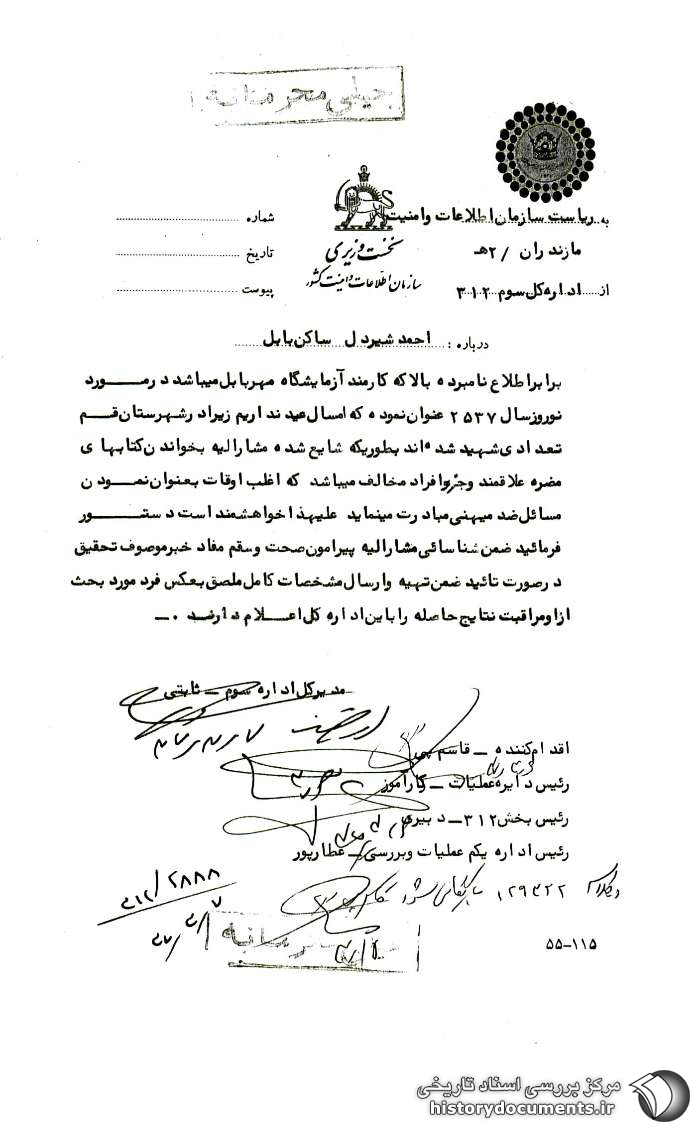 خیلی محرمانه
به ریاست سازمان اطلاعات و امنیت
مازندران / ۲هـ
از اداره کل سوم ۳۱۲
نخست وزیری
سازمان اطلاعات و امنیت کشور
شماره
تاریخ
پیوست
درباره : احمد شیردل ساکن بابل
برابر اطلاع نامبرده بالا که کارمند آزمایشگاه مهر بابل میباشد در مورد
نوروز سال ۲۵۳۷ عنوان نموده که امسال عید نداریم زیرا در شهرستان قم
تعدادی شهید شده اند بطوریکه شایع شده مشارالیه بخواندن کتابهای
مضره علاقمند و جزو افراد مخالف میباشد که اغلب اوقات بعنوان نمودن
مسائل ضد میهنی مبادرت مینماید علیهذا خواهشمند است دستور
فرمائید ضمن شناسائی مشارالیه پیرامون صحت و سقم مفاد خبر موصوف تحقیق
در صورت تائید ضمن تهیه و ارسال مشخصات کامل ملصق بعکس فرد مورد بحث
از او مراقبت نتایج حاصله را باین اداره کل اعلام دارند .ـ
مدیر کل اداره سوم ـ ثابتی
اقدام کننده ـ قاسمی
رئیس دایره عملیات ـ کارآموز
رئیس بخش ۳۱۲ ـ دبیری
رئیس اداره یکم عملیات و بررسی ـ عطارپور
۱۲۹۳۲۲ بایگانی شود
۳۱۲/۲۸۸۸
۳۷/۲/۷
۵۵-۱۱۵
مرکز بررسی اسناد تاریخی
historydocuments.ir